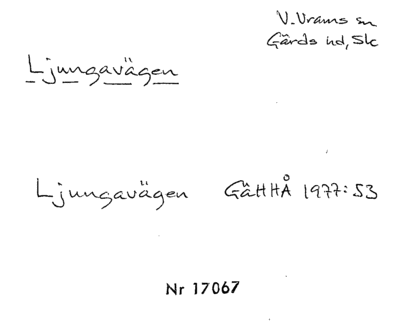 V. Vrams sn
Gärds hd, Sk
Ljungavägen
Ljungavägen GäHHÅ 1977:53
Nr 17067